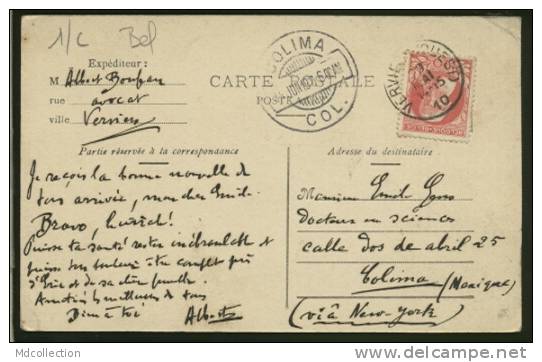 1/c Bel
Expéditeur :
M Albert
rue avocat
ville Verviers
COLIMA
COL.
CARTE POSTALE
VERVIERS (OUEST)
10
Partie réservée à la correspondance
Adresse du destinataire
Je reçois la bonne nouvelle de
ton arrivée, mon cher Emile.
Bravo, hurrah!
Puisse ta santé rester inébranlable et
puisse ton bonheur être complet près
d' et de sa chère famille.
Amitiés de tous
Bien à toi Albert
Monsieur Emile Gros
Docteur en sciences
calle dos de abril 25
Colima (Mexique)
(viâ New-York)
Mdcollection
http://www.delcampe.net